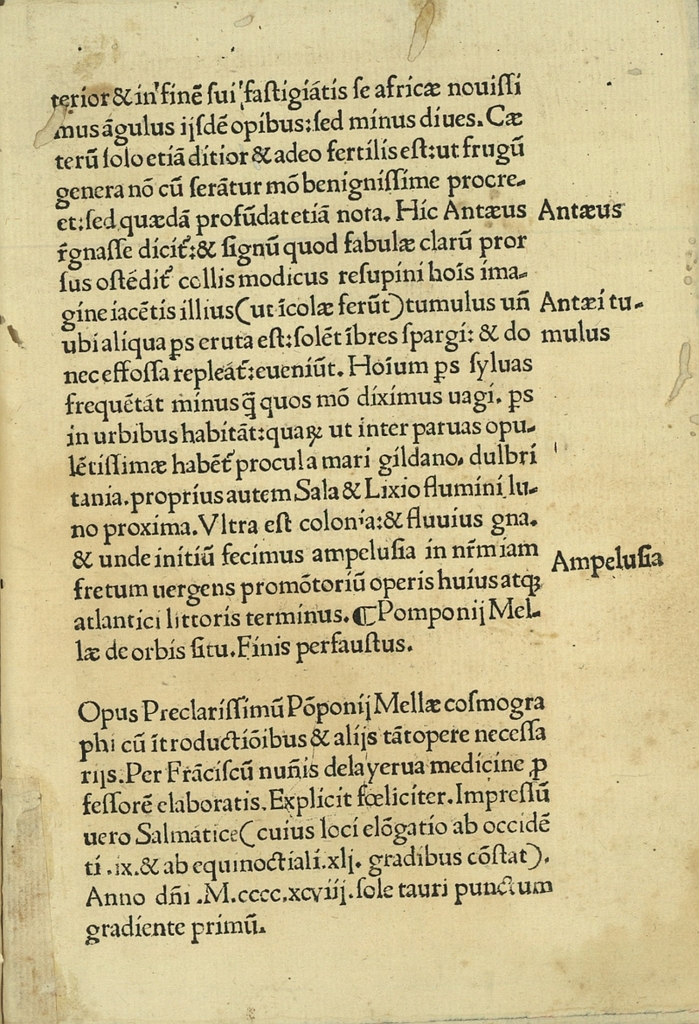 terior & in finẽ sui fastigiãtis se africæ nouissi
mus ãgulus ijsdẽ opibus: sed minus diues. Cæ
terũ solo etiã ditior & adeo fertilis est: ut frugũ
genera nõ cũ serãtur mõ benignissime procre-
et: sed quædã profũdat etiã nota. Hic Antæus Antæus
r̃gnasse dicit̃: & signũ quod fabulæ clarũ pror
sus ostẽdit̃ collis modicus resupini hoĩs ima-
gine iacẽtis illius (ut ĩcolæ ferũt) tumulus uñ Antæi tu-
ubi aliqua ps eruta est: solẽt ĩbres spargi: & do mulus
nec effossa repleãt̃: eueniũt. Hoĩum ps syluas
frequẽtãt minus q̃ quos mõ diximus uagi. ps
in urbibus habitãt: quaꝝ ut inter paruas opu-
lẽtissimæ habẽt̃ procul a mari gildano. dulbri
tania. proprius autem Sala & Lixio flumini lu-
no proxima. Vltra est colonia: & fluuius gna.
& unde initiũ fecimus ampelusia in nr̃m iam Ampelusia
fretum uergens promõtoriũ operis huius atqꝫ
atlantici littoris terminus. ¶ Pomponij Mel-
læ de orbis situ. Finis perfaustus.

Opus Preclarissimũ Põponij Mellæ cosmogra
phi cũ ĩtroductiõibus & alijs tãtopere necessa
rijs. Per Frãciscũ nuñis dela yerua medicine ꝓ
fessorẽ elaboratis. Explicit fœliciter. Impressũ
uero Salmãtice (cuius loci elõgatio ab occidẽ
ti .ix. & ab equinoctiali .xlj. gradibus cõstat).
Anno dñi .M.cccc.xcviij. sole tauri punctum
gradiente primũ.